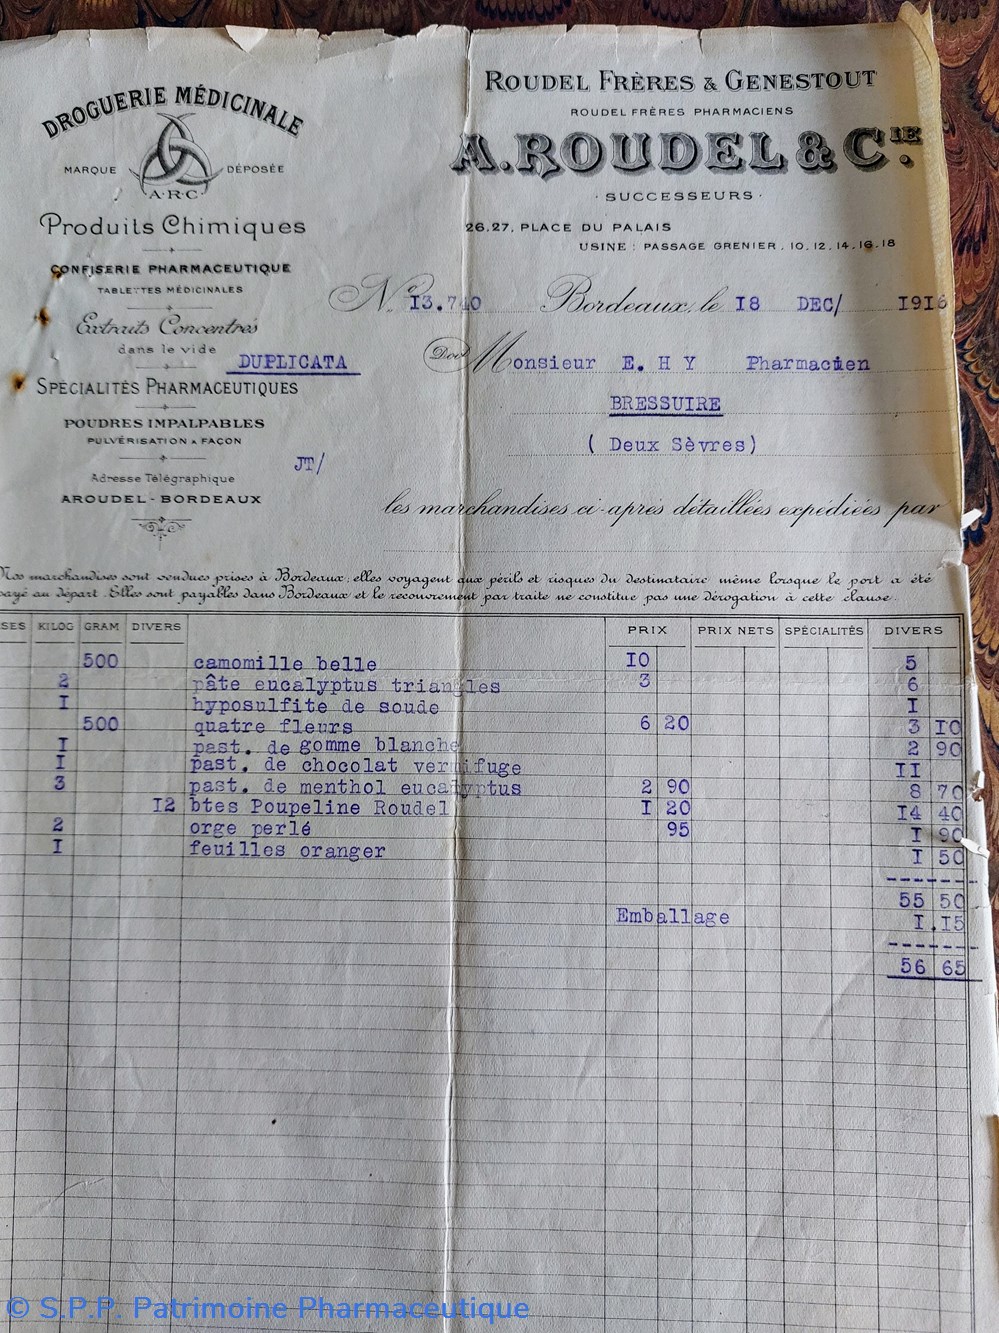 DROGUERIE MÉDICINALE
MARQUE DÉPOSÉE
A·R·C
Produits Chimiques
CONFISERIE PHARMACEUTIQUE
TABLETTES MÉDICINALES
Extraits Concentrés
dans le vide
DUPLICATA
SPÉCIALITÉS PHARMACEUTIQUES
POUDRES IMPALPABLES
PULVÉRISATION A FAÇON
JT/
Adresse Télégraphique
AROUDEL-BORDEAUX
ROUDEL FRÈRES & GENESTOUT
ROUDEL FRÈRES PHARMACIENS
A. ROUDEL & CIE.
· SUCCESSEURS ·
26.27, PLACE DU PALAIS
USINE : PASSAGE GRENIER, 10, 12, 14, 16, 18
No. I3.740 Bordeaux, le I8 DEC/ I916
Doit Monsieur E. H Y Pharmacien
BRESSUIRE
( Deux Sèvres)
les marchandises ci-après détaillées expédiées par
Nos marchandises sont vendues prises à Bordeaux, elles voyagent aux périls et risques du destinataire même lorsque le port a été
payé au départ. Elles sont payables dans Bordeaux et le recouvrement par traite ne constitue pas une dérogation à cette clause.
SES KILOG GRAM DIVERS PRIX PRIX NETS SPÉCIALITÉS DIVERS
500 camomille belle IO 5
2 pâte eucalyptus triangles 3 6
I hyposulfite de soude I
500 quatre fleurs 6 20 3 IO
I past. de gomme blanche 2 90
I past. de chocolat vermifuge II
3 past. de menthol eucalyptus 2 90 8 70
I2 btes Poupeline Roudel I 20 I4 40
2 orge perlé 95 I 90
I feuilles oranger I 50
55 50
Emballage I.I5
56 65
© S.P.P. Patrimoine Pharmaceutique